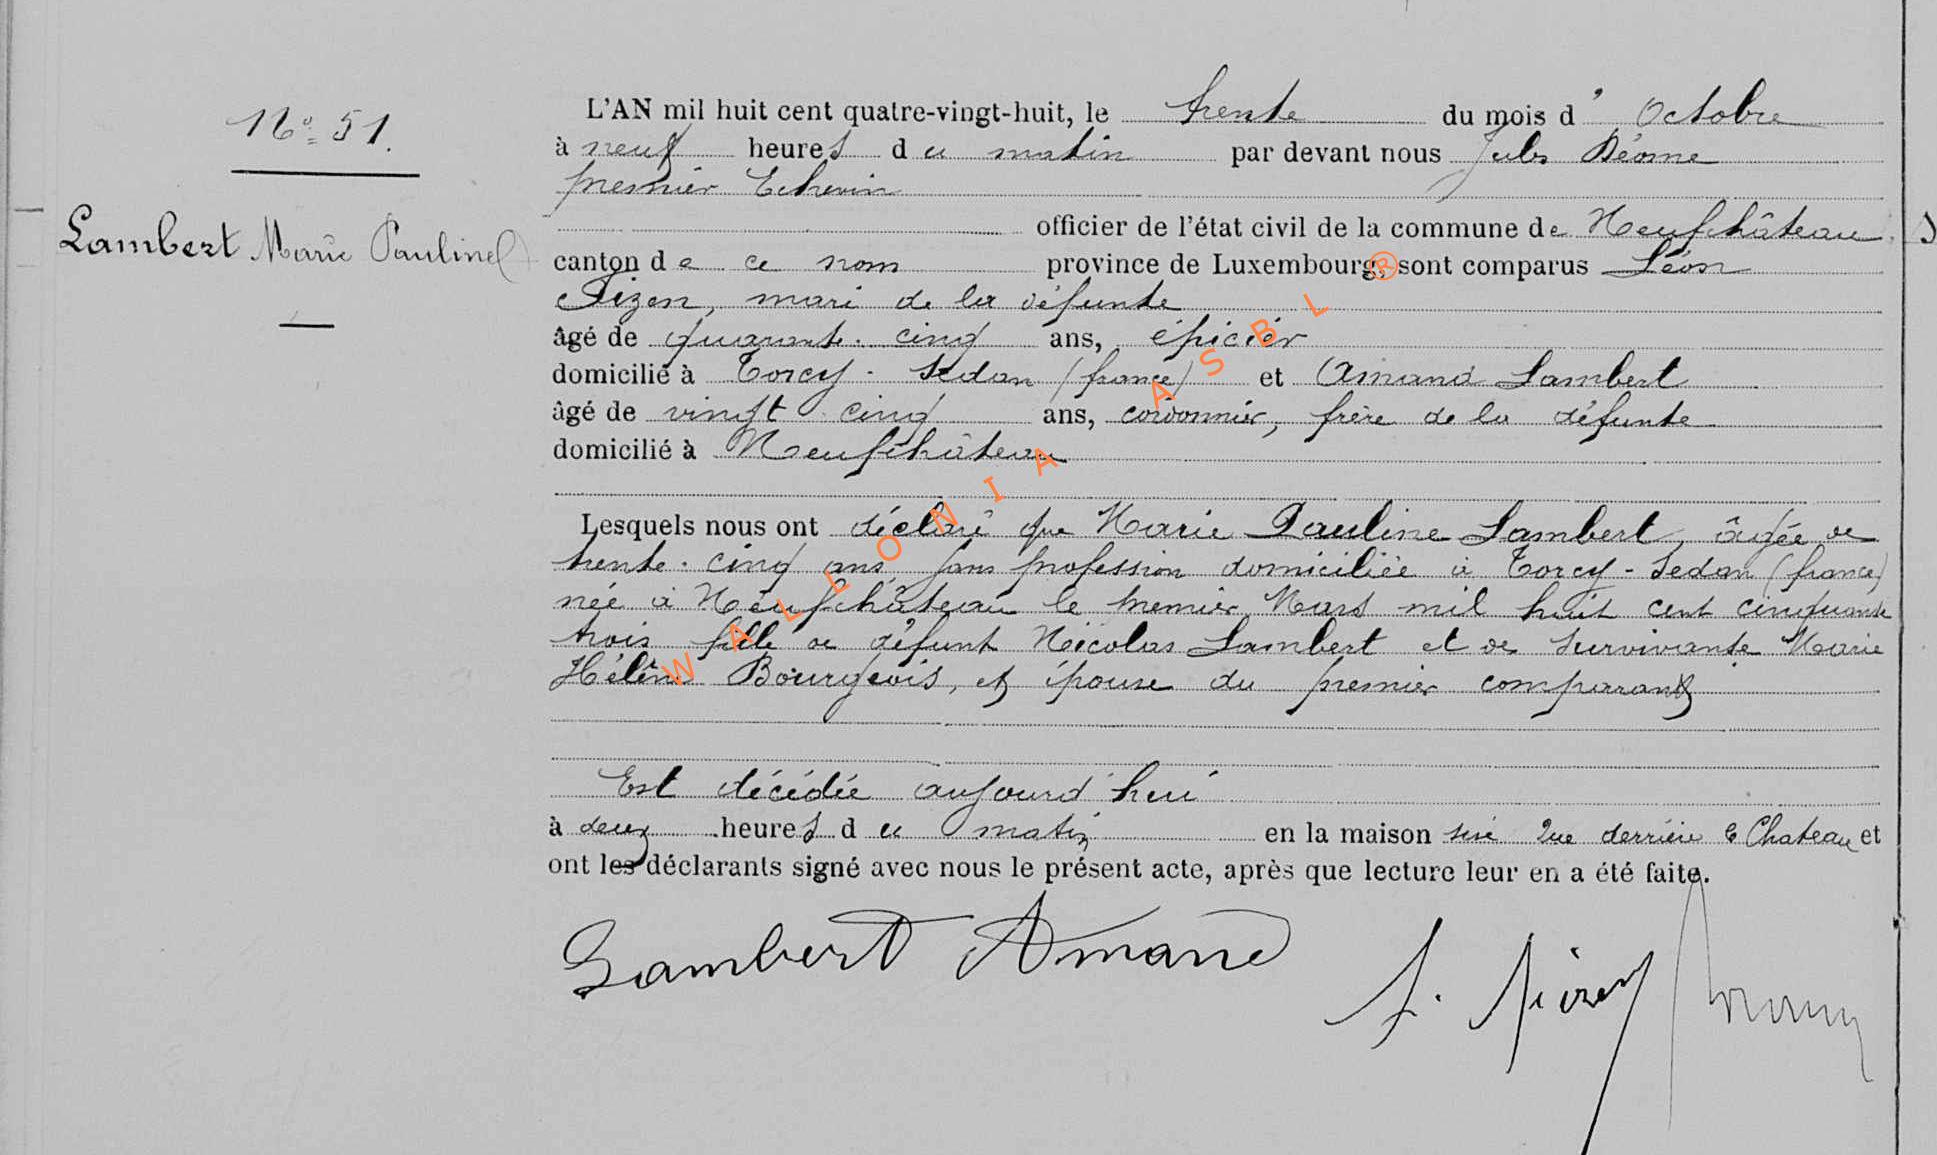 N° 51.
Lambert Marie Pauline
L'AN mil huit cent quatre-vingt-huit, le trente du mois d' Octobre
à neuf heures du matin par devant nous Jules
premier Echevin
officier de l'état civil de la commune de Neufchâteau,
canton de ce nom province de Luxembourg, sont comparus Léon
mari de la défunte
âgé de quarante-cinq ans, épicier
domicilié à Torcy-Sedan (france) et Amand Lambert
âgé de vingt cinq ans, cordonnier, frère de la défunte
domicilié à Neufchâteau
Lesquels nous ont déclaré que Marie Pauline Lambert, âgée de
trente-cinq ans sans profession domiciliée à Torcy-Sedan (france)
née à Neufchâteau le premier Mars mil huit cent cinquante
trois fille de défunt Nicolas Lambert et de survivante Marie
Hélène Bourgeois, et épouse du premier comparant
Est décédée aujourd'hui
à deux heures du matin en la maison sise rue derrière le Chateau et
ont les déclarants signé avec nous le présent acte, après que lecture leur en a été faite.
Lambert Amand
WALLONIA ASBL ®